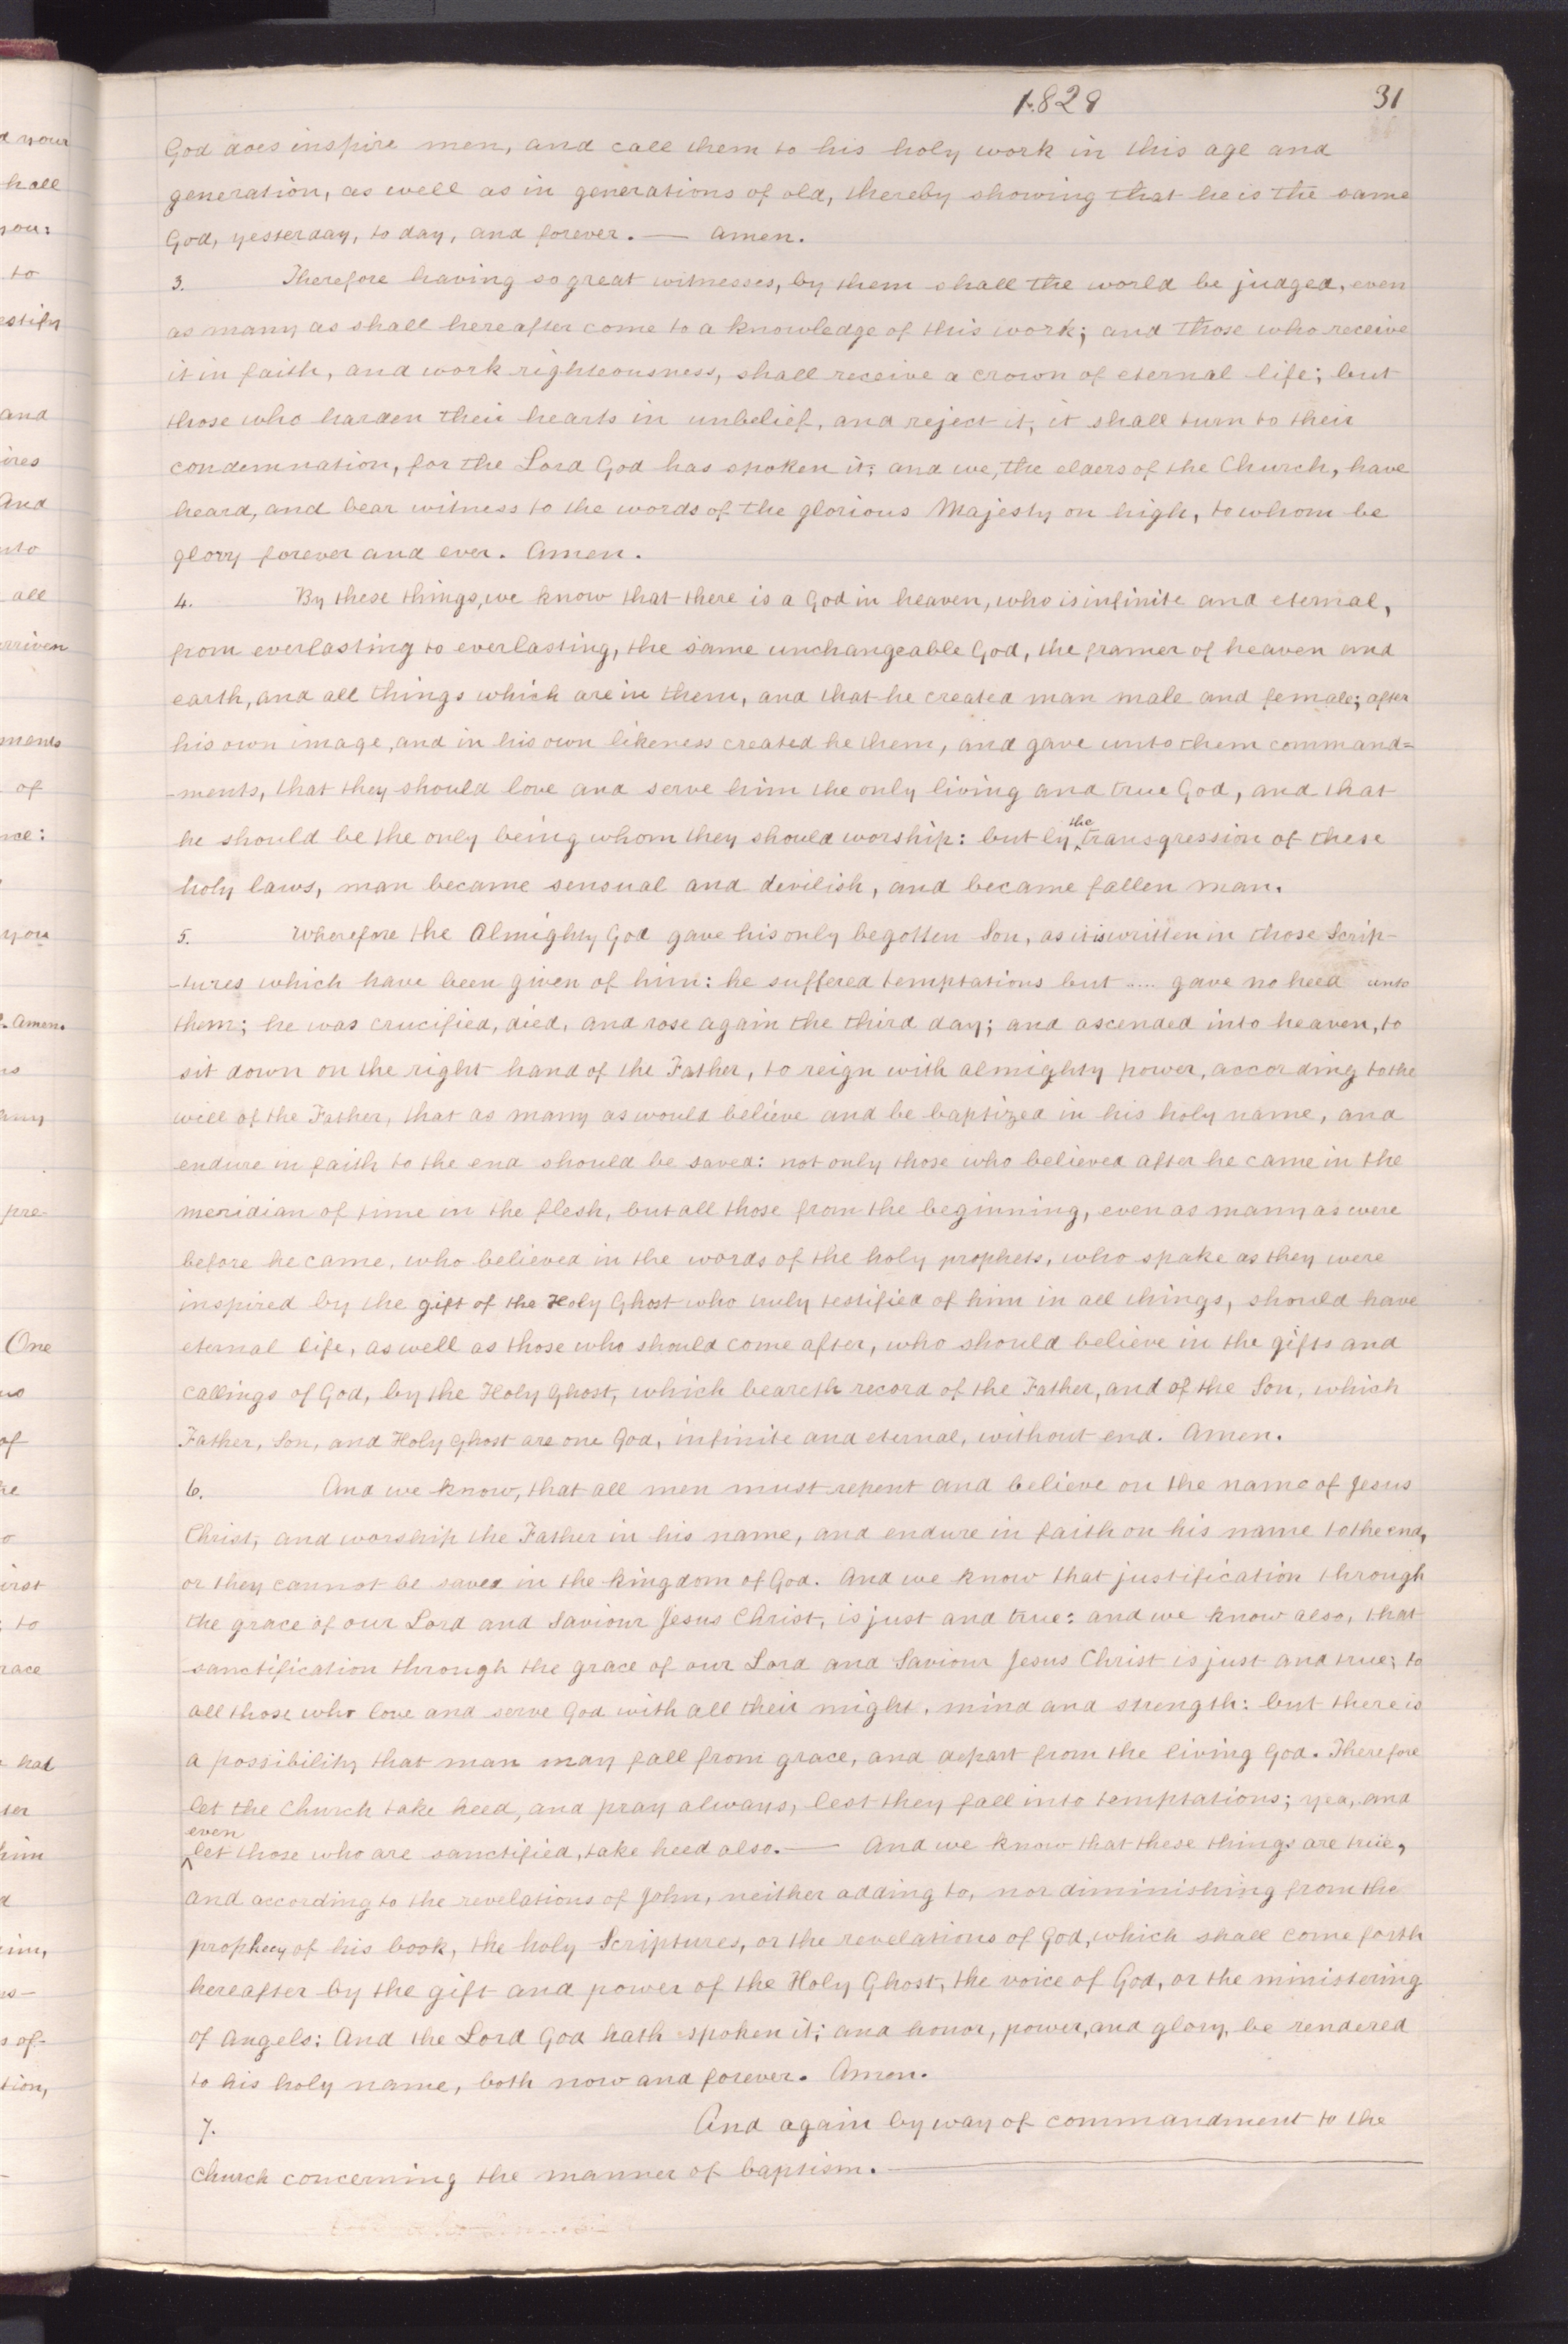 1829 31
God does inspire men, and call them to his holy work in this age and
generation, as well as in generations of old, thereby showing that he is the same
God, yesterday, to day, and forever. — Amen.
3. Therefore having so great witnesses, by them shall the world be judged, even
as many as shall hereafter come to a knowledge of this work; and those who receive
it in faith, and work righteousness, shall receive a crown of eternal life; but
those who harden their hearts in unbelief, and reject it, it shall turn to their
condemnation, for the Lord God has spoken it; and we, the elders of the Church, have
heard, and bear witness to the words of the glorious Majesty on high, to whom be
glory forever and ever. Amen.
4. By these things, we know that there is a God in heaven, who is infinite and eternal,
from everlasting to everlasting, the same unchangeable God, the framer of heaven and
earth, and all things which are in them, and that he created man male and female; after
his own image, and in his own likeness created he them, and gave unto them command=
-ments, that they should love and serve him the only living and true God, and that
he should be the only being whom they should worship: but by the transgression of these
holy laws, man became sensual and devilish, and became fallen man.
5. Wherefore the Almighty God gave his only begotten Son, as it is written in those Scrip-
-tures which have been given of him: he suffered temptations but .... gave no heed unto
them; he was crucified, died, and rose again the third day; and ascended into heaven, to
sit down on the right hand of the Father, to reign with almighty power, according to the
will of the Father, that as many as would believe and be baptized in his holy name, and
endure in faith to the end should be saved: not only those who believed after he came in the
meridian of time in the flesh, but all those from the beginning, even as many as were
before he came, who believed in the words of the holy prophets, who spake as they were
inspired by the gift of the Holy Ghost who truly testified of him in all things, should have
eternal life, as well as those who should come after, who should believe in the gifts and
callings of God, by the Holy Ghost, which beareth record of the Father, and of the Son, which
Father, Son, and Holy Ghost are one God, infinite and eternal, without end. Amen.
6. And we know, that all men must repent and believe on the name of Jesus
Christ, and worship the Father in his name, and endure in faith on his name to the end,
or they cannot be saved in the kingdom of God. And we know that justification through
the grace of our Lord and Saviour Jesus Christ, is just and true: and we know also, that
sanctification through the grace of our Lord and Saviour Jesus Christ is just and true; to
all those who love and serve God with all their might, mind and strength: but there is
a possibility that man may fall from grace, and depart from the living God. Therefore
let the Church take heed, and pray always, lest they fall into temptations; yea, and
even let those who are sanctified, take heed also. — And we know that these things are true,
and according to the revelations of John, neither adding to, nor diminishing from the
prophecy of his book, the holy Scriptures, or the revelations of God, which shall come forth
hereafter by the gift and power of the Holy Ghost, the voice of God, or the ministering
of Angels: And the Lord God hath spoken it; and honor, power, and glory, be rendered
to his holy name, both now and forever. Amen.
7. And again by way of commandment to the
Church concerning the manner of baptism. —